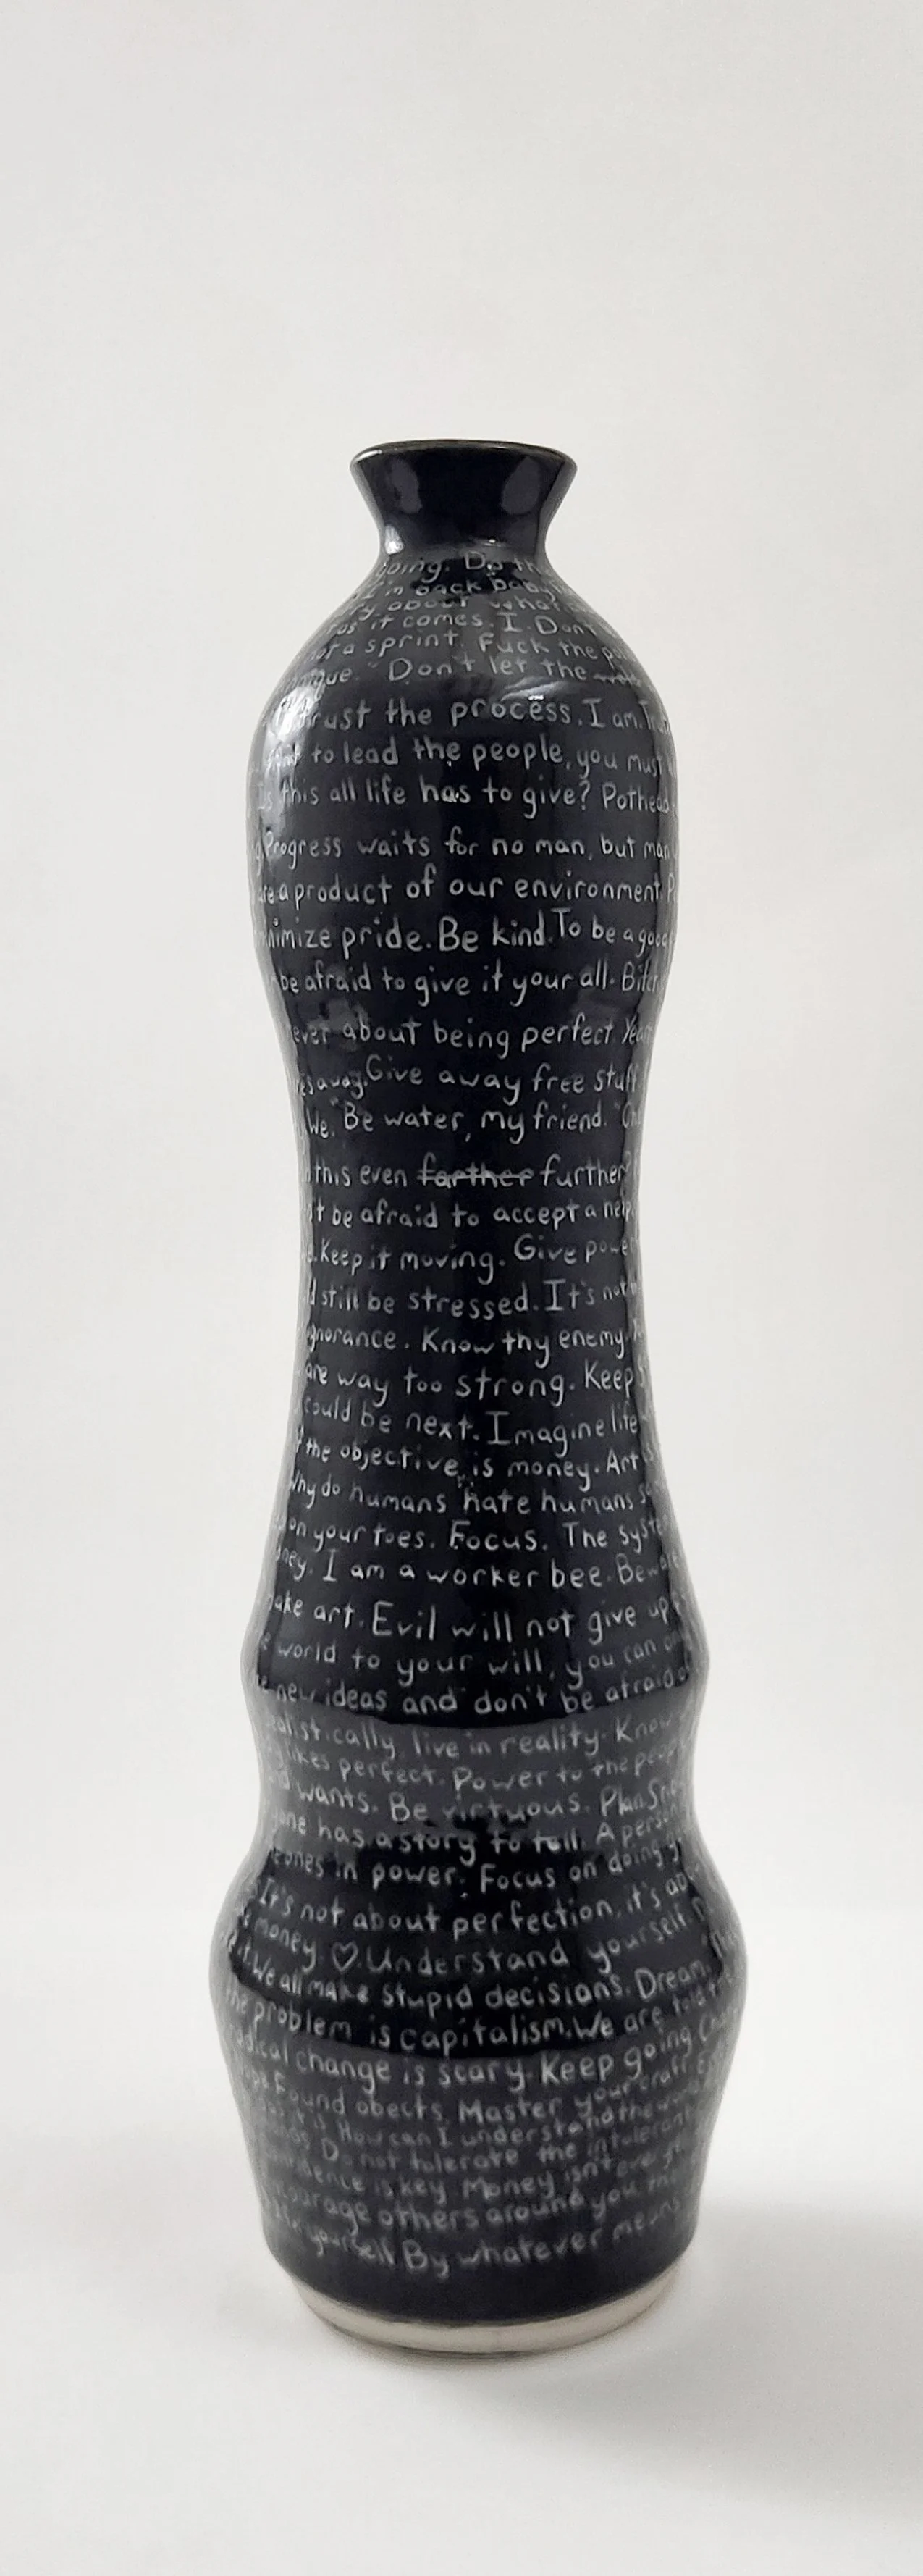 going. Do
I'm back baby
about what
as it comes. I Don't
not a sprint. Fuck the
"Don't let the
trust the process. I am.
to lead the people, you must
Is this all life has to give? Pothead
Progress waits for no man, but man
are a product of our environment.
minimize pride. Be kind. To be a good
be afraid to give it your all. Bitch
ever about being perfect Year
away. Give away free stuff
We. "Be water, my friend."
this even farther further?
't be afraid to accept a help
Keep it moving. Give power
still be stressed. It's not
ignorance. Know thy enemy.
are way too strong. Keep
could be next. Imagine life
the objective is money. Art
Why do humans hate humans
on your toes. Focus. The system
I am a worker bee. Beware
make art. Evil will not give up
world to your will, you can
new ideas and don't be afraid
realistically, live in reality. Know
likes perfect. Power to the people
wants. Be virtuous. Plan.
has a story to tell. A person
ones in power. Focus on doing
It's not about perfection, it's
money. ♡. Understand yourself
We all make stupid decisions. Dream.
the problem is capitalism. We are
radical change is scary. Keep going
Found obects. Master your craft.
is. How can I understand the
Do not tolerate the intolerant
is key Money isn't
courage others around you
yourself. By whatever means